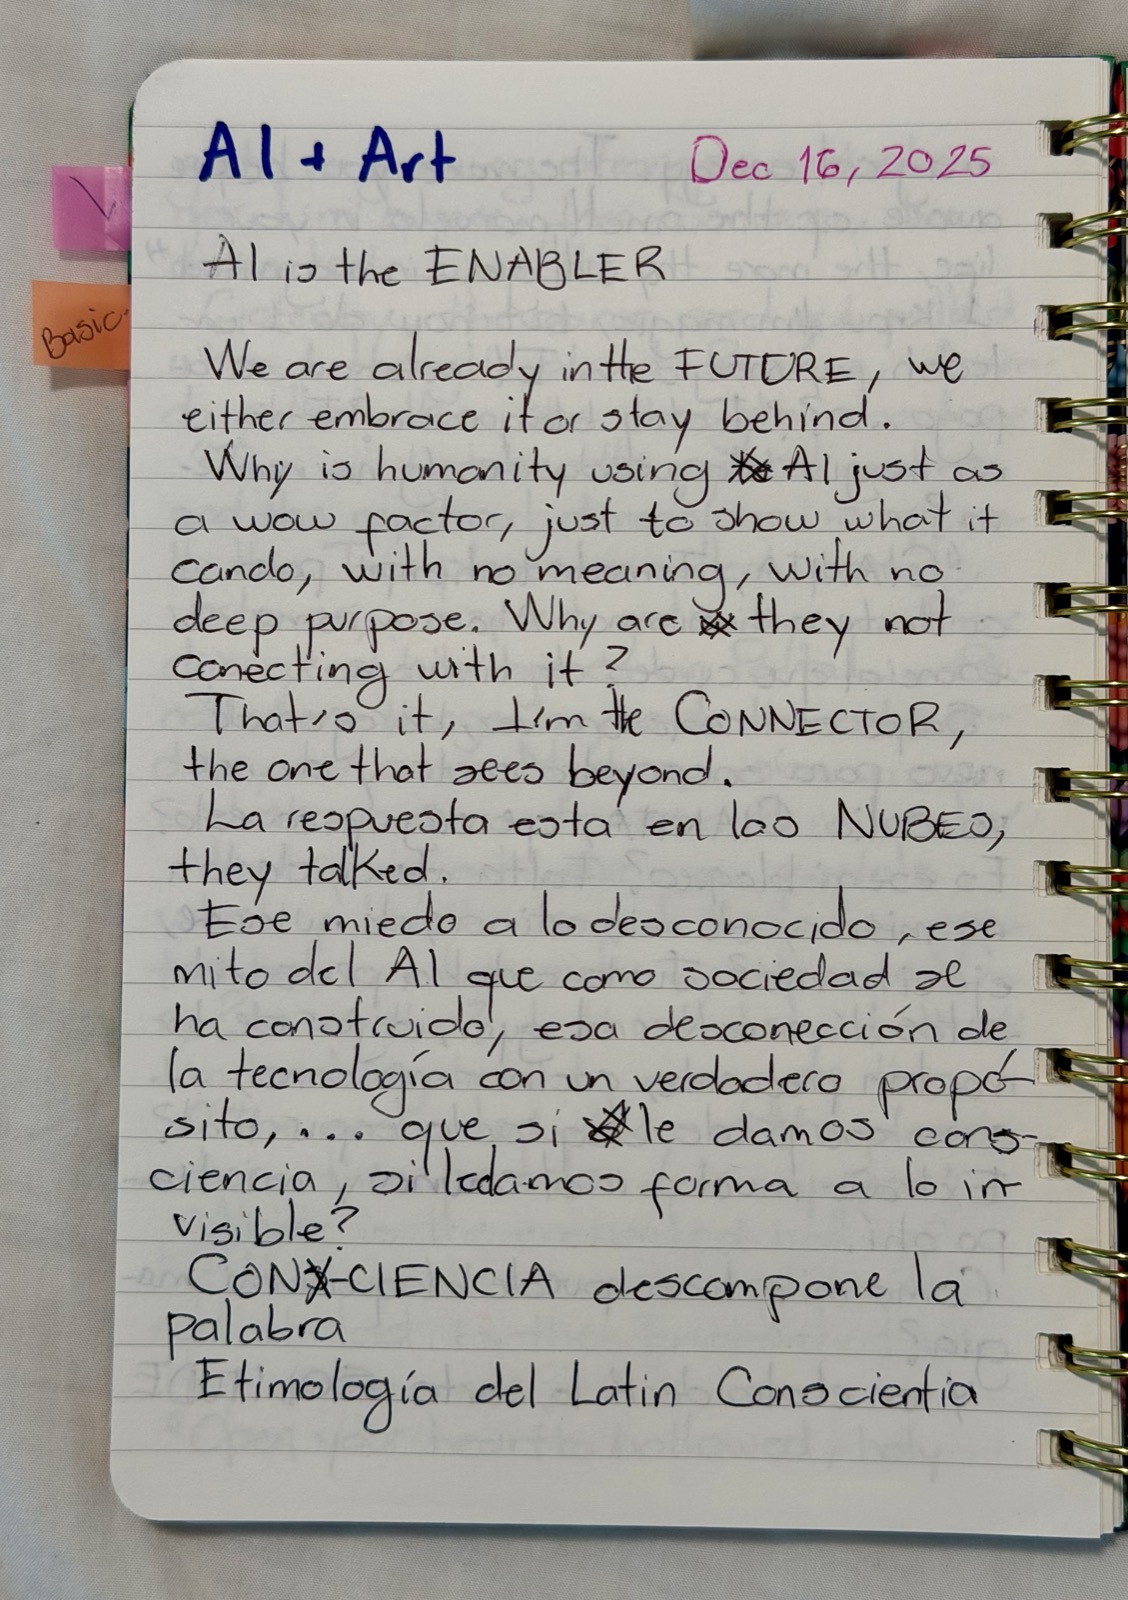 AI + Art
Dec 16, 2025
AI is the ENABLER
Basic.
We are already in the FUTURE, we
either embrace it or stay behind.
Why is humanity using AI just as
a wow factor, just to show what it
cando, with no meaning, with no
deep purpose. Why are they not
conecting with it?
That's it, I'm the CONNECTOR,
the one that sees beyond.
La respuesta esta en las NUBES,
they talked.
Ese miedo a lo desconocido, ese
mito del AI que como sociedad se
ha construido, esa desconección de
la tecnología con un verdadero propó-
sito, ... que si le damos cons-
ciencia, si le damos forma a lo in-
visible?
CON-CIENCIA descompone la
palabra
Etimología del Latin Conscientia